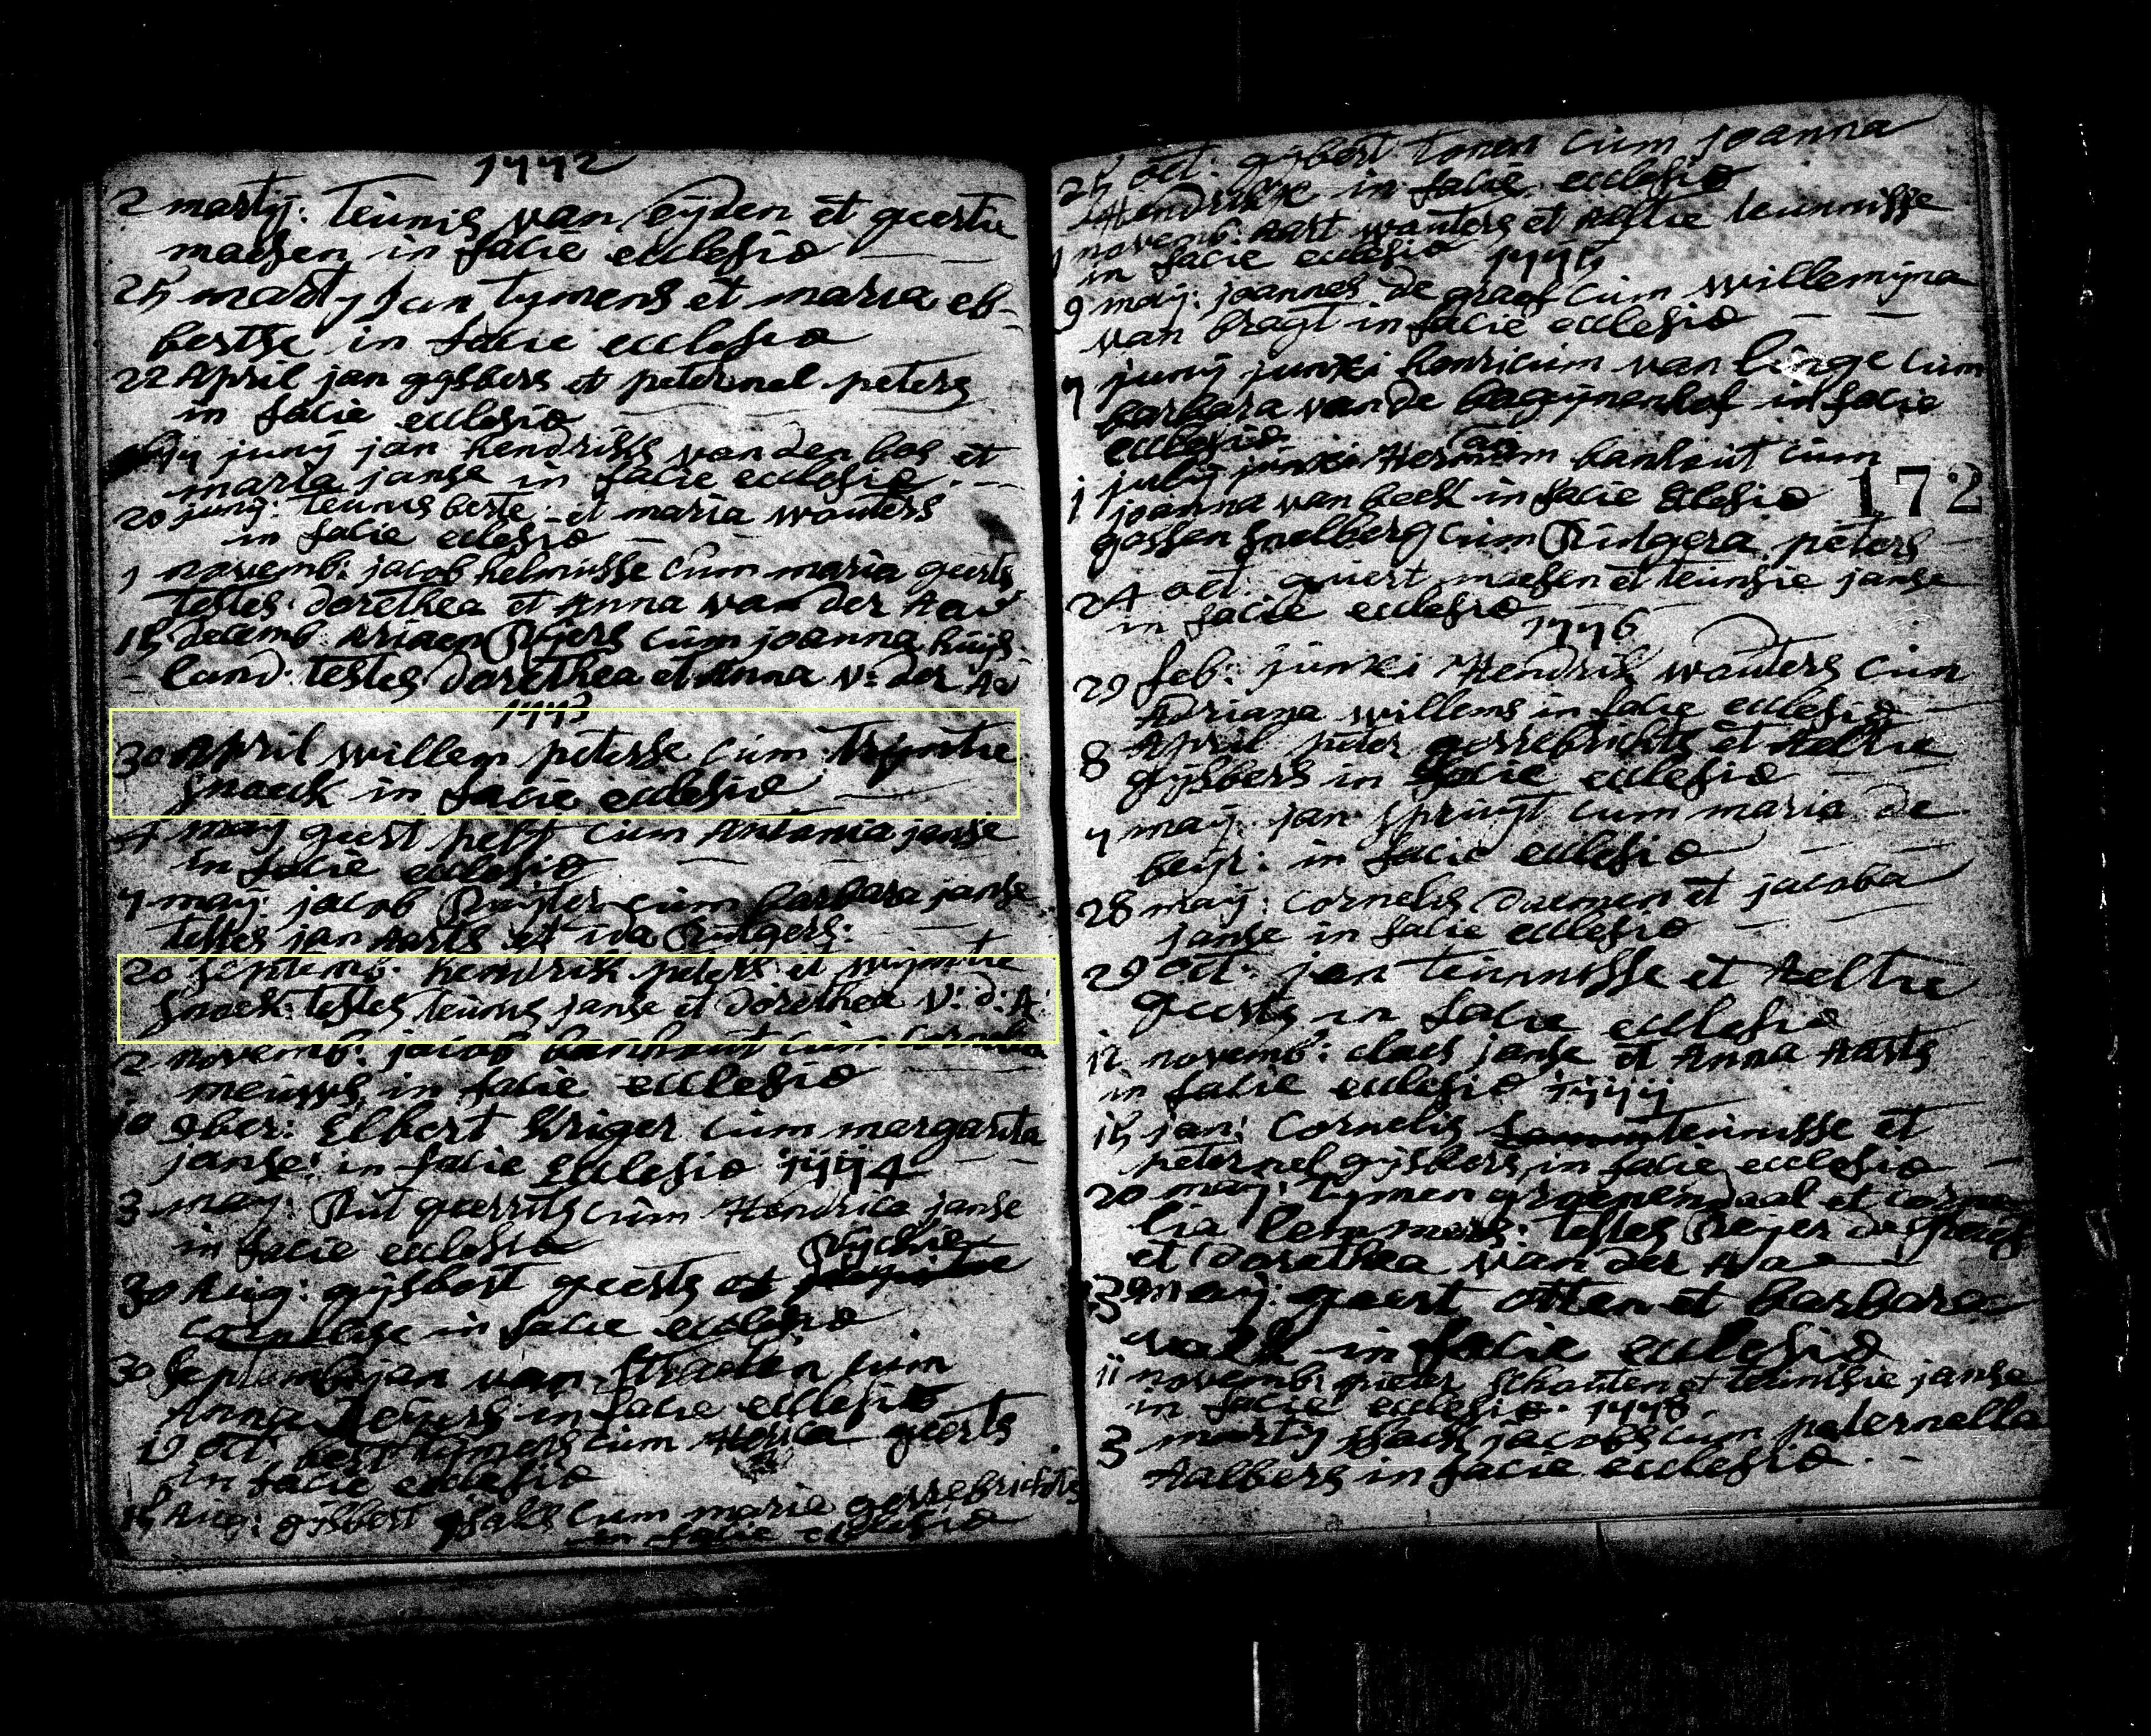 1772
2 martij: Teunis van eyden et geertie
maesen in facie ecclesiae
25 martij Jan tymens et maria eb-
bertse in facie ecclesiae
22 April jan gijsbers et peternel peters
in facie ecclesiae
7 junij jan hendriks van den bos et
maria janse in facie ecclesiae
20 junij: teunis berte et maria wouters
in facie ecclesiae
1 novemb: jacob helmisse cum maria geerts
testes dorethea et Anna van der Aa
15 decemb: Ariaen Rijers cum joanna huijs
land: testes dorethea et Anna v: der Aa
1773
30 April willem peterse cum Tryntie
snoeck in facie ecclesiae
4 may geert peff cum Antonia janse
in facie ecclesiae
7 maij: jacob Ruijter cum barbara janse
testes jan Aarts et ida Rutgers:
20 septemb: hendrik peters et wijntie
snoek: testes teunis janse et dorethea v: d: A:
2 novemb: jacob banhout cum Cornelia
meuws in facie ecclesiae
10 9ber: Elbert Kriger cum margarita
janse: in facie ecclesiae 1774
3 may: Rut gerrits cum Hendrica janse
in facie ecclesiae Rijckie
30 Aug: gijsbert geerts et
cornelisse in facie ecclesiae
30 Septemb: jan van Straten cum
Anna Reijers in facie ecclesiae
19 oct: bert tijmens cum geerts
in facie ecclesiae
15 Aug: gijsbert cum marie gerrebrichts
in facie ecclesiae
25 oct: gijsbert tonen cum Joanna
Hendrikx in facie ecclesiae
1 novemb: Aart wouters et Aeltie teunnisse
in facie ecclesiae 1775
9 maij: joannes de graaf cum willemijna
van bragt in facie ecclesiae
7 junij junxi henricum van linge cum
barbara van de bagijnenhof in facie
ecclesiae
1 julij junxi Hermam banhout cum
joanna van beek in facie Ecclesiae 172
gossen snelberg cum Rutgera peters
24 oct: guiert maesen et teunsie janse
in facie ecclesiae
1776
29 feb: junxi Hendrik wouters cum
Adriana willems in facie ecclesiae
8 April peter gerrebrichts et Aeltie
gijsbers in facie ecclesiae
7 maij jan spruijt cum maria de
beijr: in facie ecclesiae
28 maij: cornelis daemen et jacoba
janse in facie ecclesiae
29 oct: jan teunnisse et Aeltie
geerts in facie ecclesiae
12 novemb: claes janse et Anna Aarts
in facie ecclesiae 1777
15 jan: Cornelis teunisse et
peternel gijsbers in facie ecclesiae
20 maij: tymen groenendaal et corne
lia lemmers: testes Reijer de
et dorathea van der Aa
30 maij: geert otten et barbara
valk in facie ecclesiae
11 novemb: pieter schouten et teunisie janse
in facie ecclesiae 1778
3 martij jsack jacobs cum peternella
Aalbers in facie ecclesiae